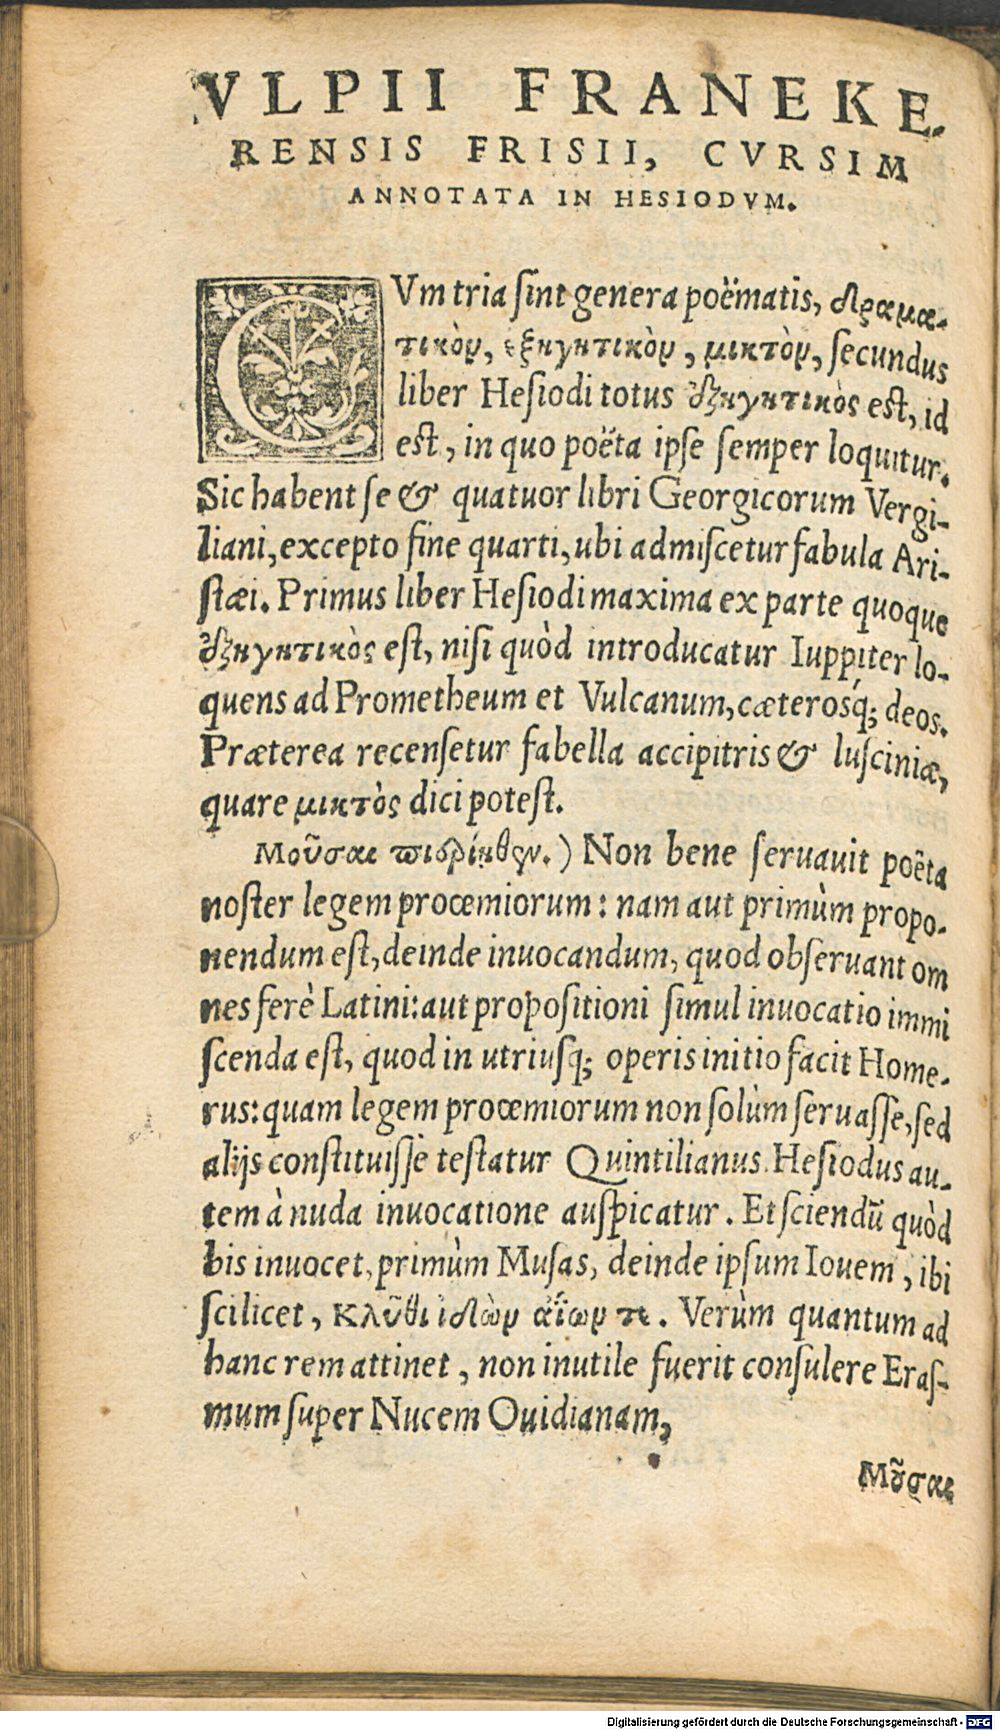 VLPII FRANEKE-
RENSIS FRISII, CVRSIM
ANNOTATA IN HESIODVM.
CVm tria ſint genera poëmatis, δραμα-
τικὸν, ἐξηγητικὸν, μικτὸν, ſecundus
liber Heſiodi totus ἐξηγητικὸς eſt, id
eſt, in quo poëta ipſe ſemper loquitur.
Sic habent ſe & quatuor libri Georgicorum Vergi-
liani, excepto fine quarti, ubi admiſcetur fabula Ari-
ſtæi. Primus liber Heſiodi maxima ex parte quoque
ἐξηγητικὸς eſt, niſi quòd introducatur Iuppiter lo-
quens ad Prometheum et Vulcanum, cæterosq́; deos.
Præterea recenſetur fabella accipitris & luſciniæ,
quare μικτὸς dici poteſt.
Μοῦσαι πιερίηθεν.) Non bene ſeruauit poëta
noſter legem procemiorum: nam aut primùm propo-
nendum eſt, deinde inuocandum, quod obſeruant om
nes ferè Latini: aut propoſitioni ſimul inuocatio immi
ſcenda eſt, quod in utriuſq; operis initio facit Home-
rus: quam legem procemiorum non ſolùm ſeruaſſe, ſed
alijs conſtituiſſe teſtatur Quintilianus. Heſiodus au-
tem à nuda inuocatione auſpicatur. Et ſciendũ quòd
bis inuocet, primùm Muſas, deinde ipſum Iouem, ibi
ſcilicet, κλῦθι ἰδὼν ἀΐων τε. Verùm quantum ad
hanc rem attinet, non inutile fuerit conſulere Eraſ-
mum ſuper Nucem Ouidianam,
Μοῦσαι
Digitalisierung gefördert durch die Deutsche Forschungsgemeinschaft - DFG